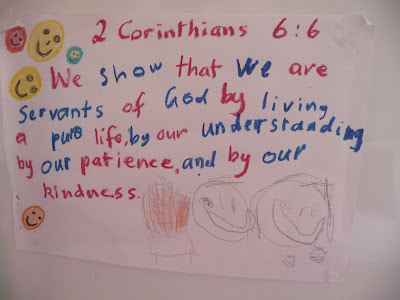 2 Corinthians 6:6
We show that we are
servants of God by living
a pure life, by our understanding
by our patience, and by our
kindness.